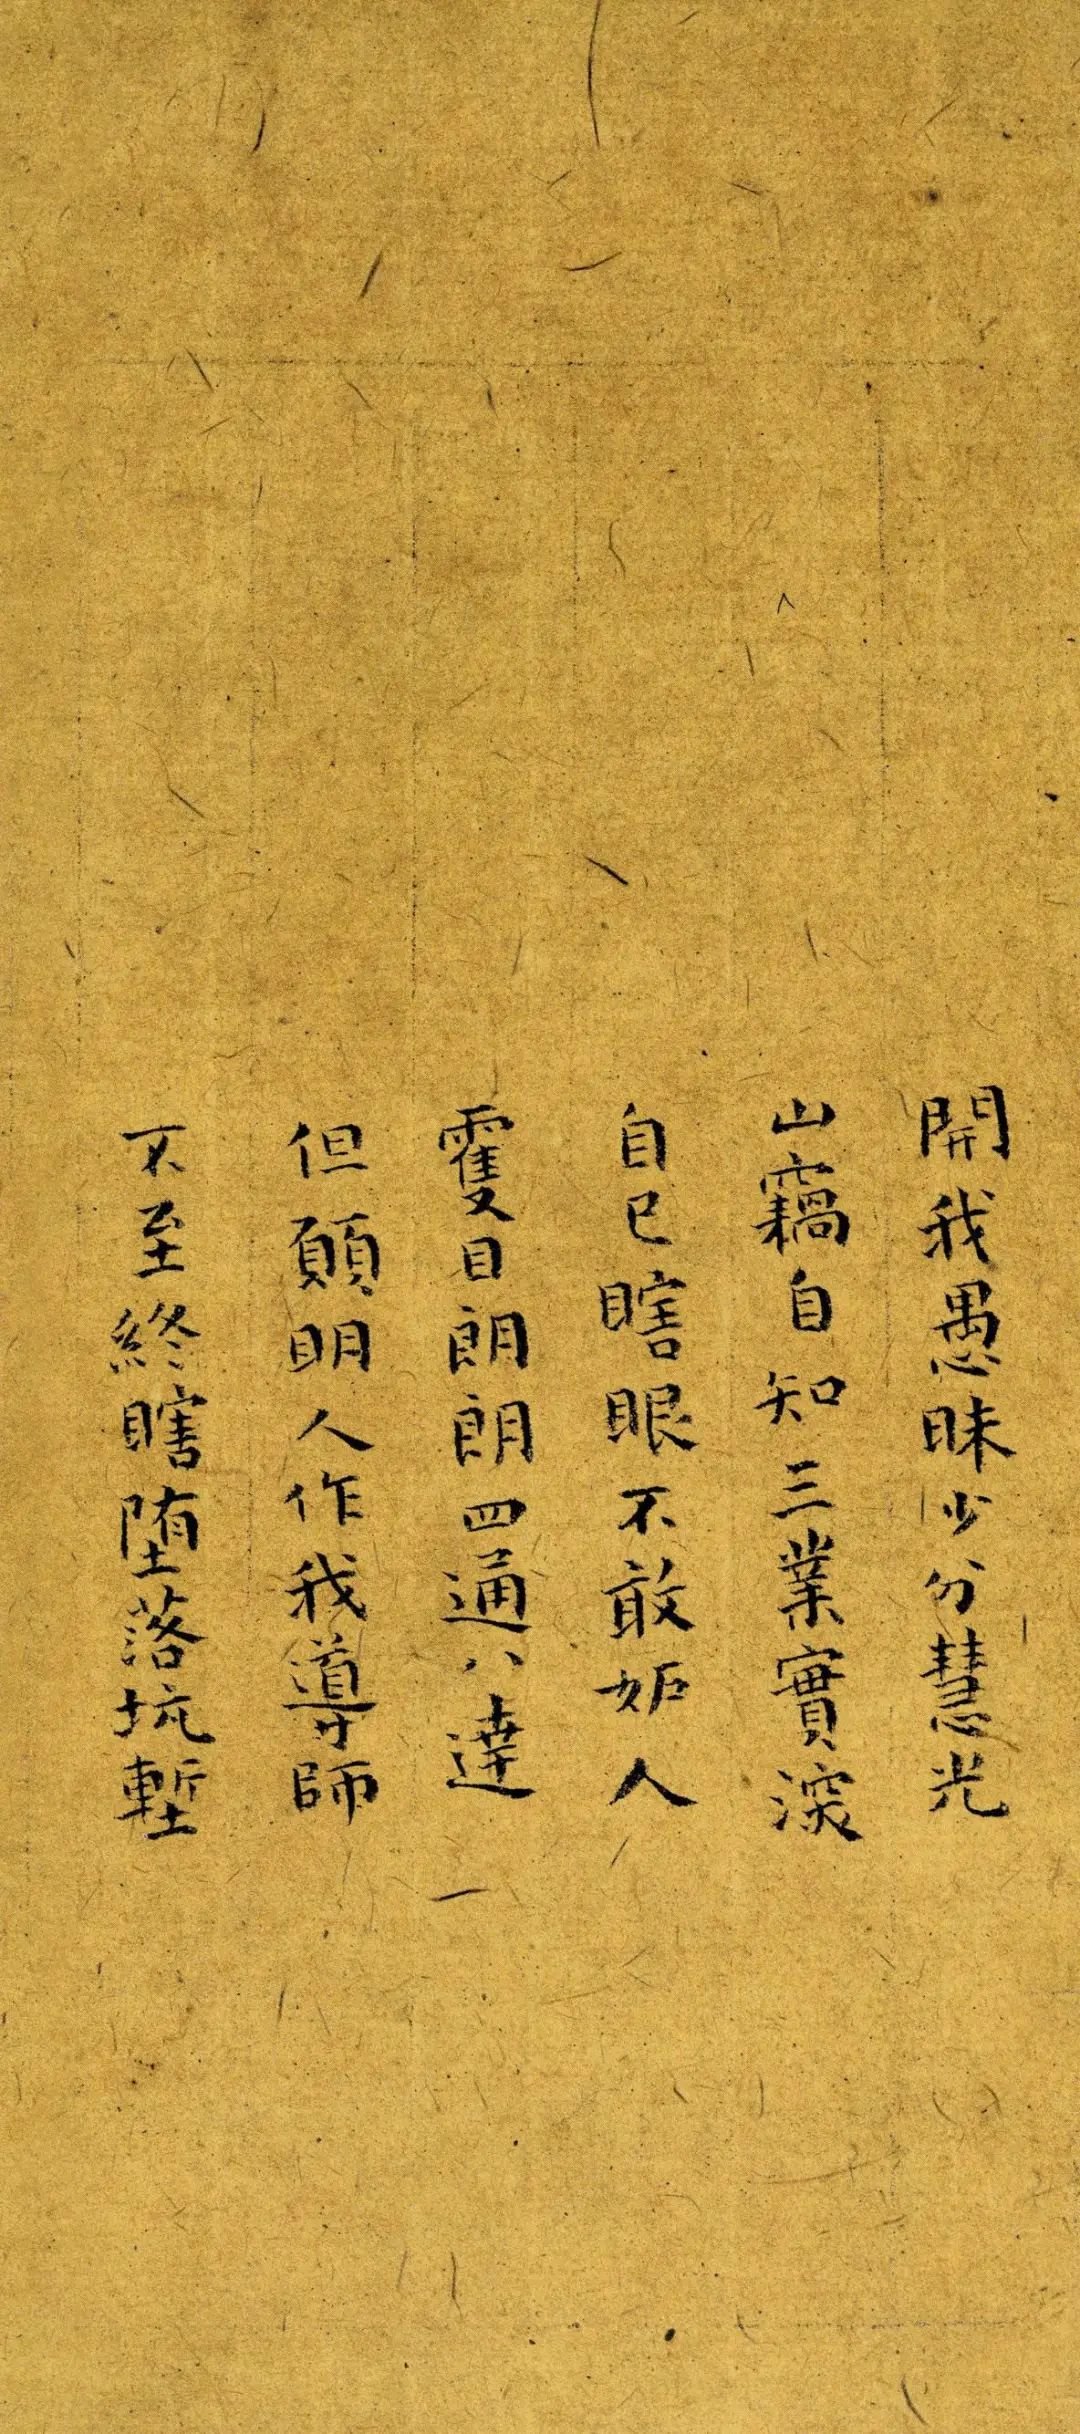 開我愚昧少分慧光
山竊自知三業實深
自己瞎眼不敢妬人
霍目朗朗四通八達
但願明人作我導師
不至終瞎墮落坑塹